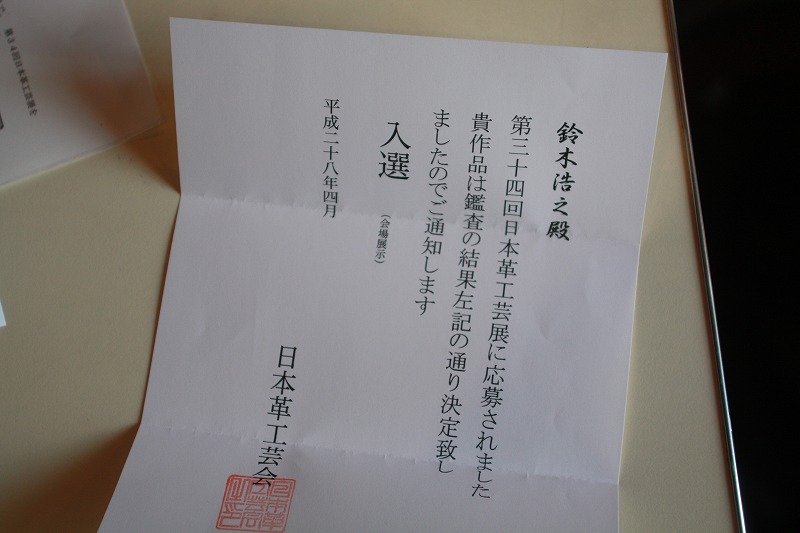 鈴木浩之殿
第三十四回日本革工芸展に応募されました
貴作品は鑑査の結果左記の通り決定致し
ましたのでご通知します
入選
(会場展示)
平成二十八年四月
日本革工芸会
第34回日本革工芸展を